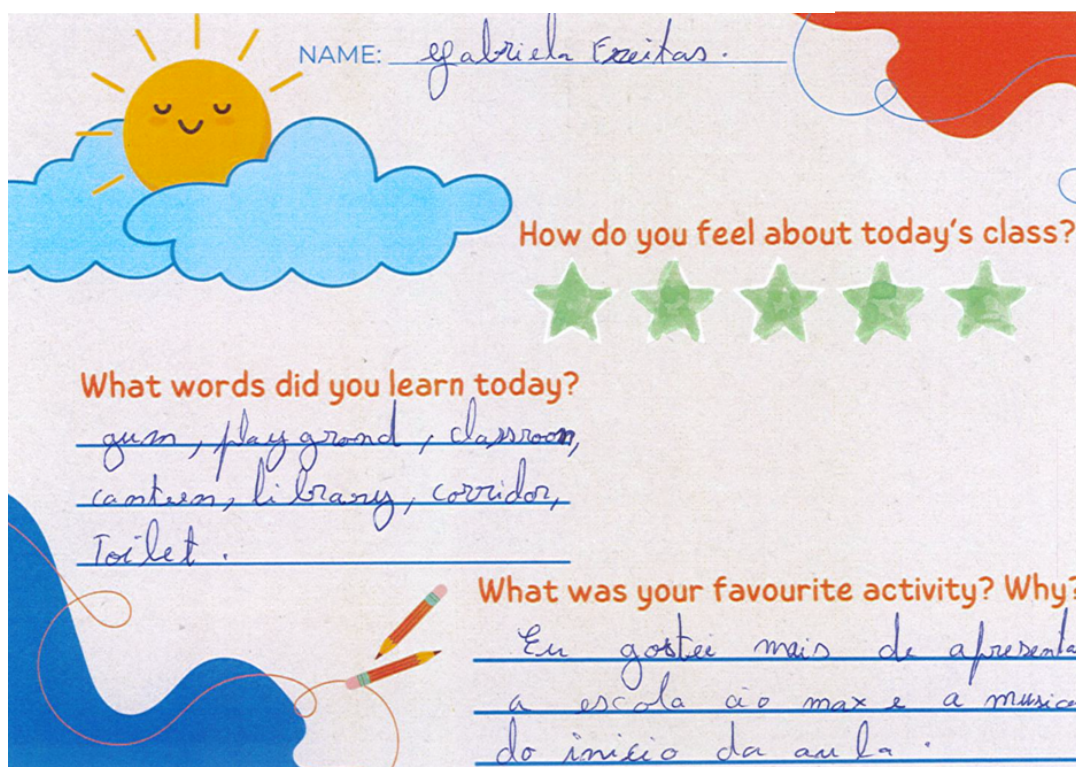 NAME: Gabriela Freitas.
How do you feel about today's class?
What words did you learn today?
gum, playgrond, classroom,
canteen, library, corridor,
Toilet.
What was your favourite activity? Why?
Eu gostei mais de apresenta
a escola ao max e a musica
do inicio da aula.